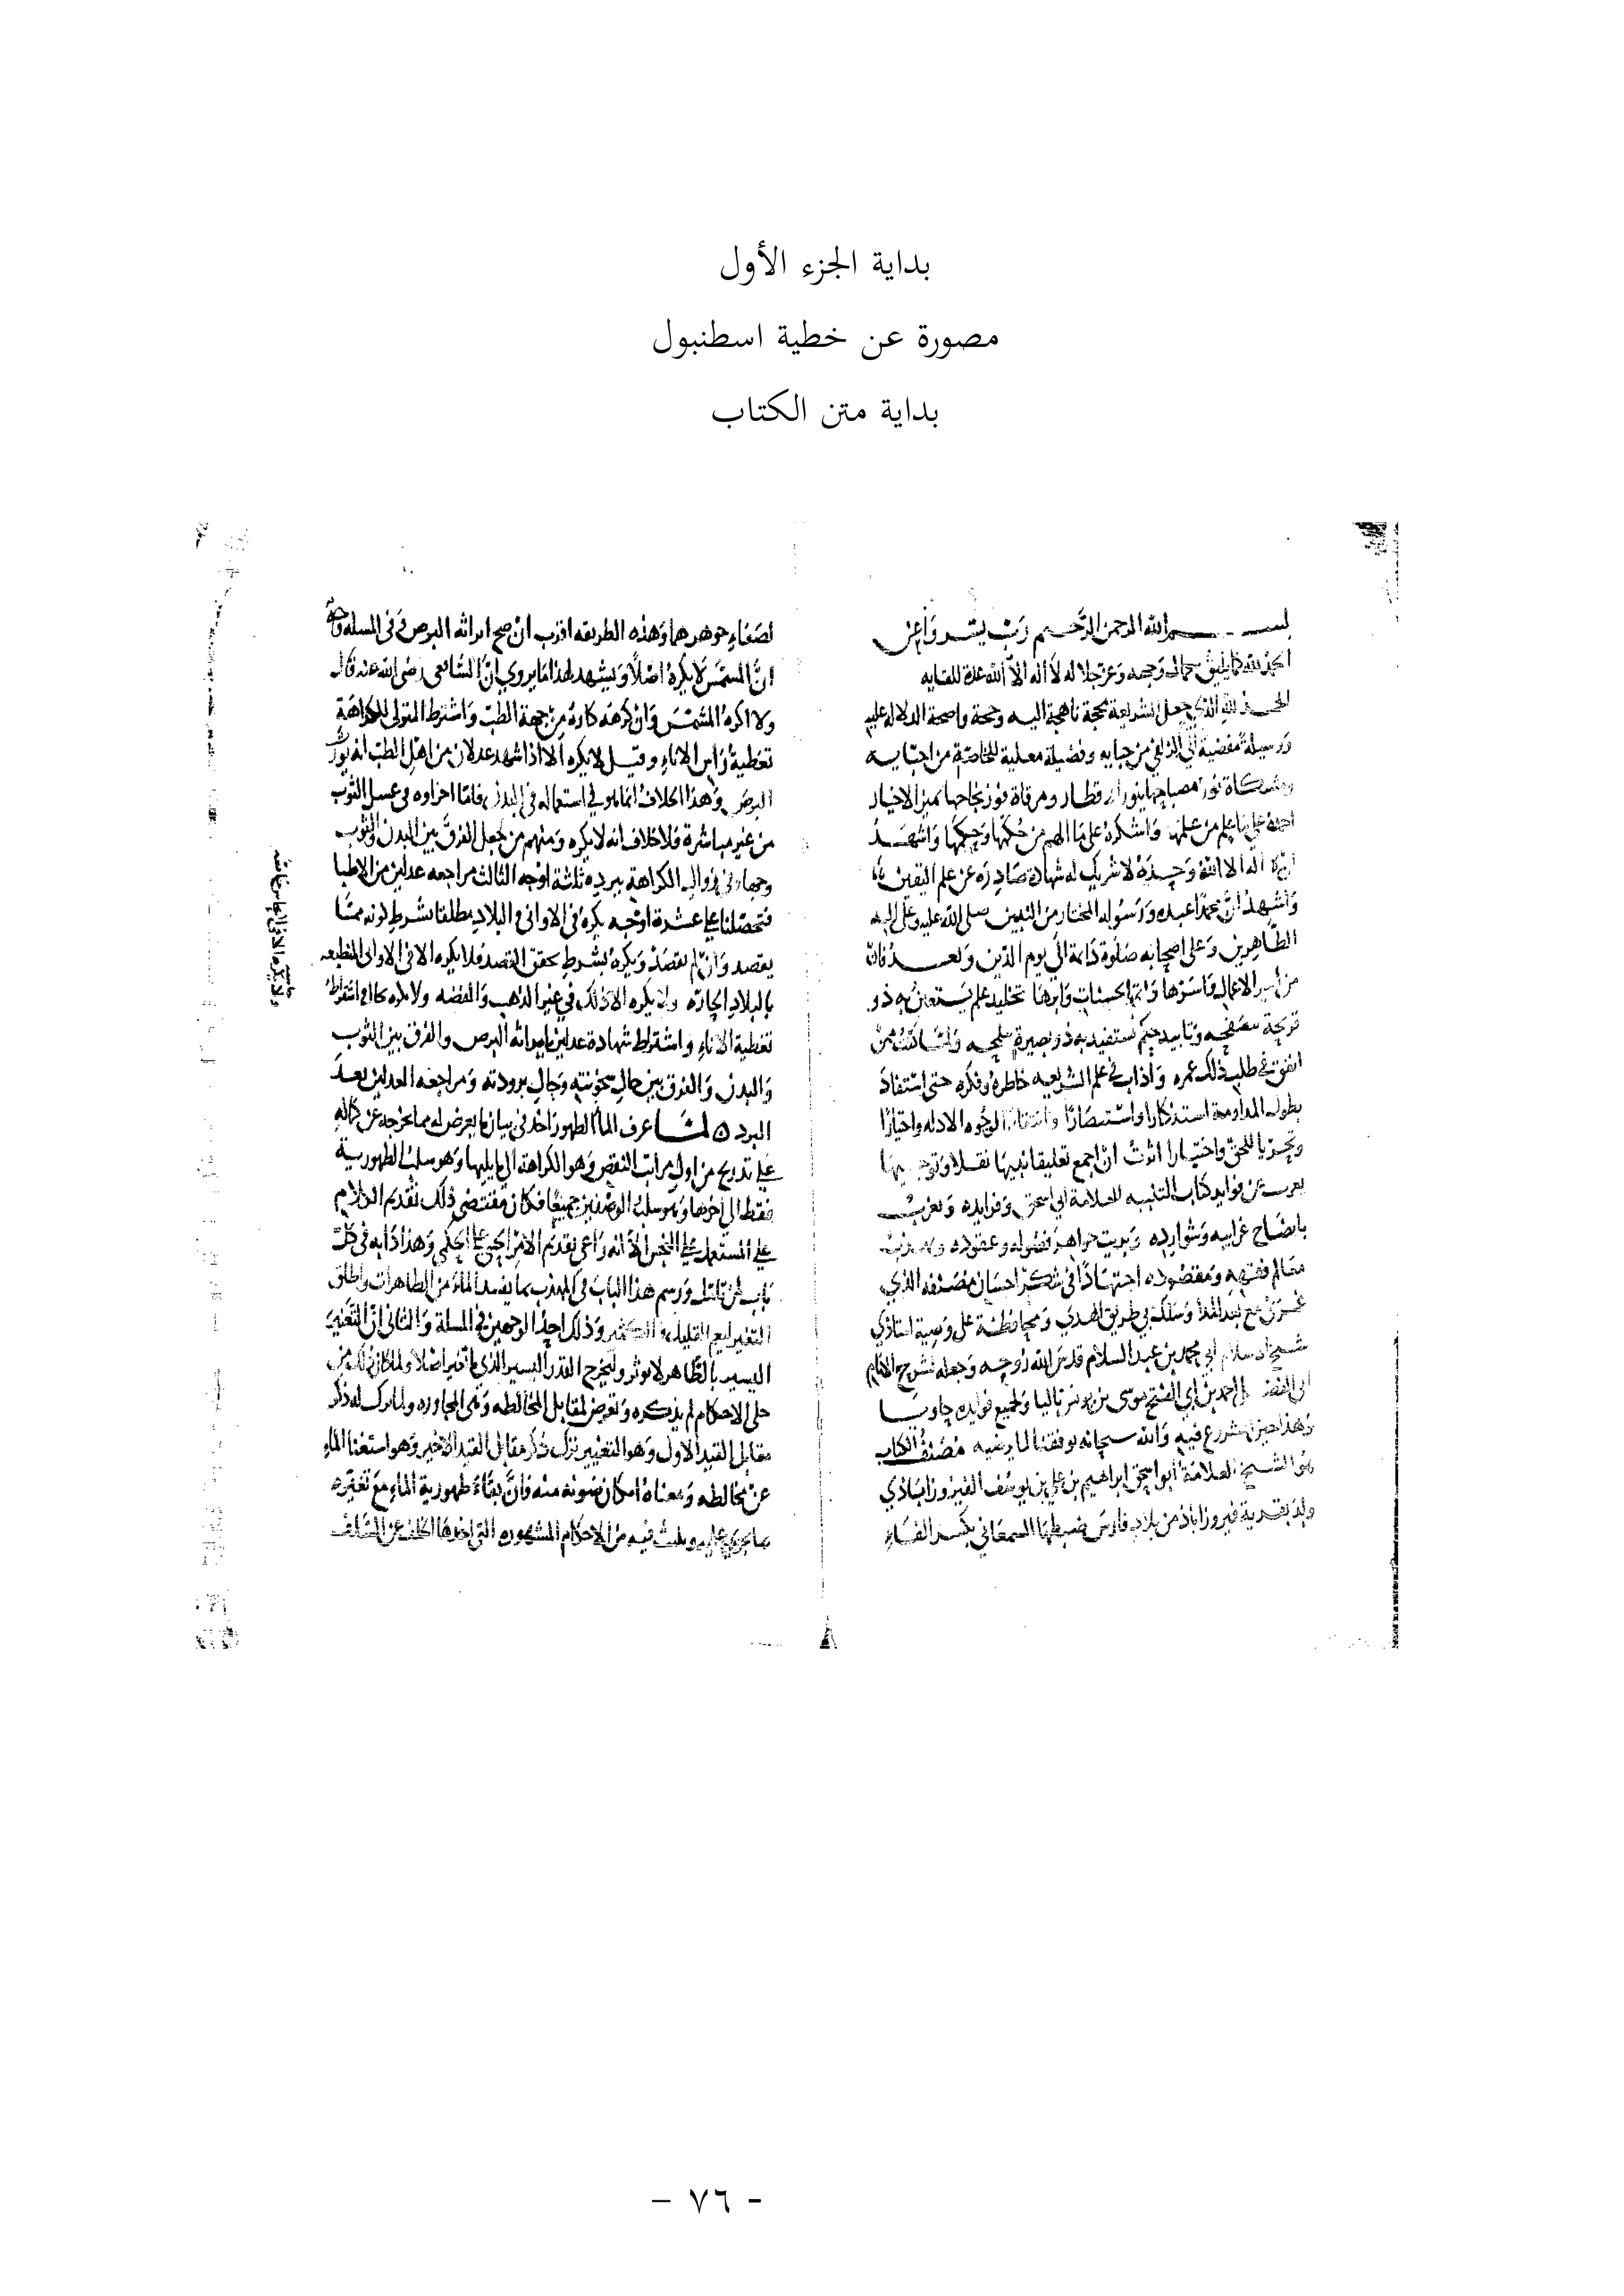 بداية الجزء الأول
مصورة عن خطية اسطنبول
بداية متن الكتاب
بسم الله الرحمن الرحيم رب يسر واعن
الحمد لله كما يليق بجمال وجهه وعز جلاله لا اله الا الله عدة للقايه
الحمد لله الذي جعل الشريعة محجة ناهجة اليه وحجة واضحة الدلالة عليه
ووسيلة مفضية الى الزلفى من جنابه وفضيلة معلية للخاصة من
ومشكاة نور مصباحها ينور ومرقاة فوز نجاحها ميز الاخيار
احمده على ما علم من علمها واشكره على ما الهم من حكمها وحكمها واشهد
ان لا اله الا الله وحده لا شريك له شهادة صادرة عن علم اليقين
واشهد ان محمدا عبده ورسوله المختار من النبيين صلى الله عليه وعلى اله
الطاهرين وعلى اصحابه صلوة دائمة الى يوم الدين وبعد فان
من الاعمال واسرها الحسنات تخليد علم يستعين به ذو
قريحة وتابيد حكم يستفيد به ذو بصيرة ولما كنت ممن
انفق في طلب ذلك عمره واذاب في علم الشريعه خاطره وفكره حتى استفاد
بطول المداومة استذكارا واستبصارا وانتقاء لوجوه الادله واختيارا
وتحريا للحق واختيارا اثرت ان اجمع تعليقا نبيها نقلا وتوجيها
يعرب عن فوايد كتاب التنبيه للعلامة ابي اسحق وفرايده ويعرب
بايضاح غرايبه وشوارده وترتيب جواهر فصوله وعقوده
معالم فقهه ومقصوده اجتهادا في شكر احسان مصنفه الذي
وسلك بي طريق الهدى ومحافظة على وصية استاذي
ابي محمد بن عبد السلام قدس الله روحه وجعله لشرح الامام
ابي الفضل احمد بن ابي الفتح موسى بن يونس تاليا ولجميع فوايده حاويا
وهذا حين اشرع فيه والله سبحانه يوفقنا لما يرضيه مصنف الكتاب
هو الشيخ العلامة ابو اسحق ابراهيم بن علي بن يوسف الفيروزاباذي
ولد بقرية فيروزاباذ من بلاد فارس ضبطها السمعاني بكسر الفاء
لصفاء جوهرها وهذه الطريقه اقرب ان صح ايراثه البرص وفي المسله وجه
ان المشمس لا يكره اصلا ويشهد لهذا ما يروي ان الشافعي رضي الله عنه قال
ولا اكره المشمس وان كرهه كاره من جهة الطب واشترط المتولي للكراهة
تغطية راس الاناء وقيل لا يكره الا اذا شهد عدلان من اهل الطب انه يورث
البرص وهذا الخلاف انما هو في استعماله في البدن فاما اجزاوه في غسل الثوب
من غير مباشرة فلا خلاف انه لا يكره ومنهم من جعل الفرق بين البدن والثوب
وجها وفي زوال الكراهة ببرده ثلثة اوجه الثالث مراجعه عدلين من الاطبا
فتحصلنا على عشرة اوجه يكره في الاواني في البلاد مطلقا بشرط كونه مما
يقصد وان لم يقصد ويكره بشرط تحقق القصد فلا يكره الا في الاواني المنطبعه
بالبلاد الحاره ولا يكره الا ذلك في غير الذهب والفضه ولا يكره اشتراط
تغطية الاناء واشتراط شهادة عدلين بايراثه البرص والفرق بين الثوب
والبدن والفرق بين حال سخونته وحال برودته ومراجعه العدلين بعد
البرد لما عرف الماء الطهور اخذ في بيان ما يعرض له مما يخرجه عن كماله
على تدريج من اول مراتب النقص وهو الكراهة الى ما يليها وهو سلب الطهورية
فقط الى اخرها وهو سلب الوصفين جميعا فكان مقتضى ذلك تقديم الكلام
على المستعمل على النجس الا انه راعى تقديم الامر الحسي على الحكمي وهذا دابه في كل
باب لمن تامل ورسم هذا الباب في المهذب بما يفسد الماء من الطاهرات واطلق
التغير ليعم القليل والكثير وذلك احد الوجهين في المسلة والثاني ان التغير
اليسير بالطاهر لا يوثر وليخرج القدر اليسير الذي لم تغير اصلا
جلي الاحكام لم يذكره وتعرض لمقابل المخالطه وهي المجاوره ولما ترك له ذكر
مقابل القيد الاول وهو التغيير ترك ذكر مقابل القيد الاخير وهو استغنا الماء
عن مخالطه ومعناه امكان صونه منه فان بقاء طهورية الماء مع تغيره
بما يجري عليه ويلبث فيه من الاحكام المشهوره التي اخذها الخلف عن السلف
- ٧٦ -